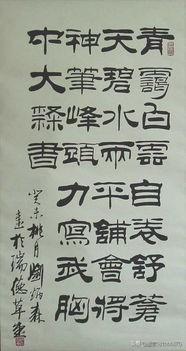 青靄白雲自卷舒蒼
天碧水兩平舖會將
神筆峰頭力寫我胸
中大隸書
癸未桃月劉炳森
於瑞德草堂